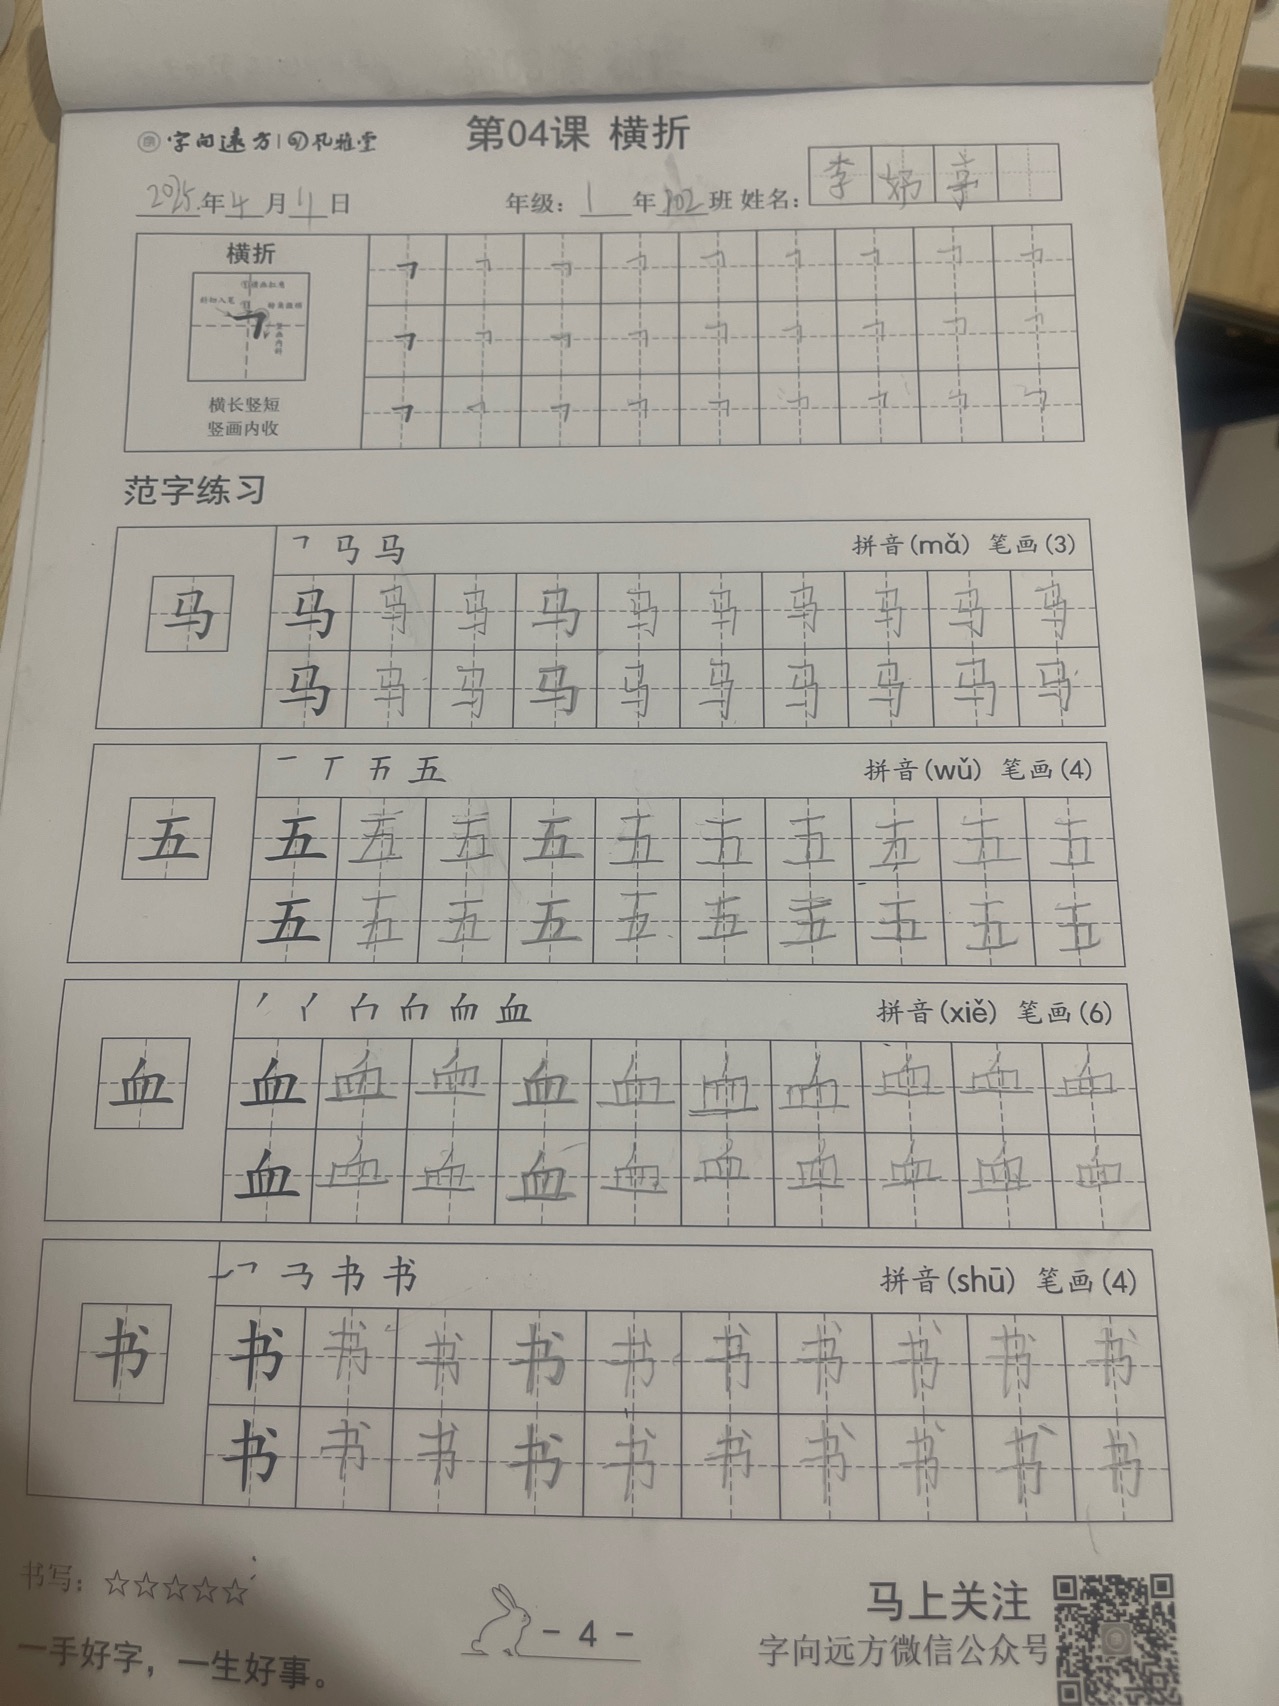 字向远方 凤雅堂
第04课 横折
2025年4月11日 年级：1年102班 姓名：李妍亭
横折
横长竖短
竖画内收
范字练习
乛 马 马 拼音(mǎ) 笔画(3)
马 马 马 马 马 马 马 马 马 马 马
马 马 马 马 马 马 马 马 马 马
一 丅 五 五 拼音(wǔ) 笔画(4)
五 五 五 五 五 五 五 五 五 五 五
五 五 五 五 五 五 五 五 五 五
血 拼音(xiě) 笔画(6)
血 血 血 血 血 血 血 血 血 血 血
血 血 血 血 血 血 血 血 血 血
乛 书 书 拼音(shū) 笔画(4)
书 书 书 书 书 书 书 书 书 书 书
书 书 书 书 书 书 书 书 书 书
书写：☆☆☆☆☆
一手好字，一生好事。
- 4 -
马上关注
字向远方微信公众号